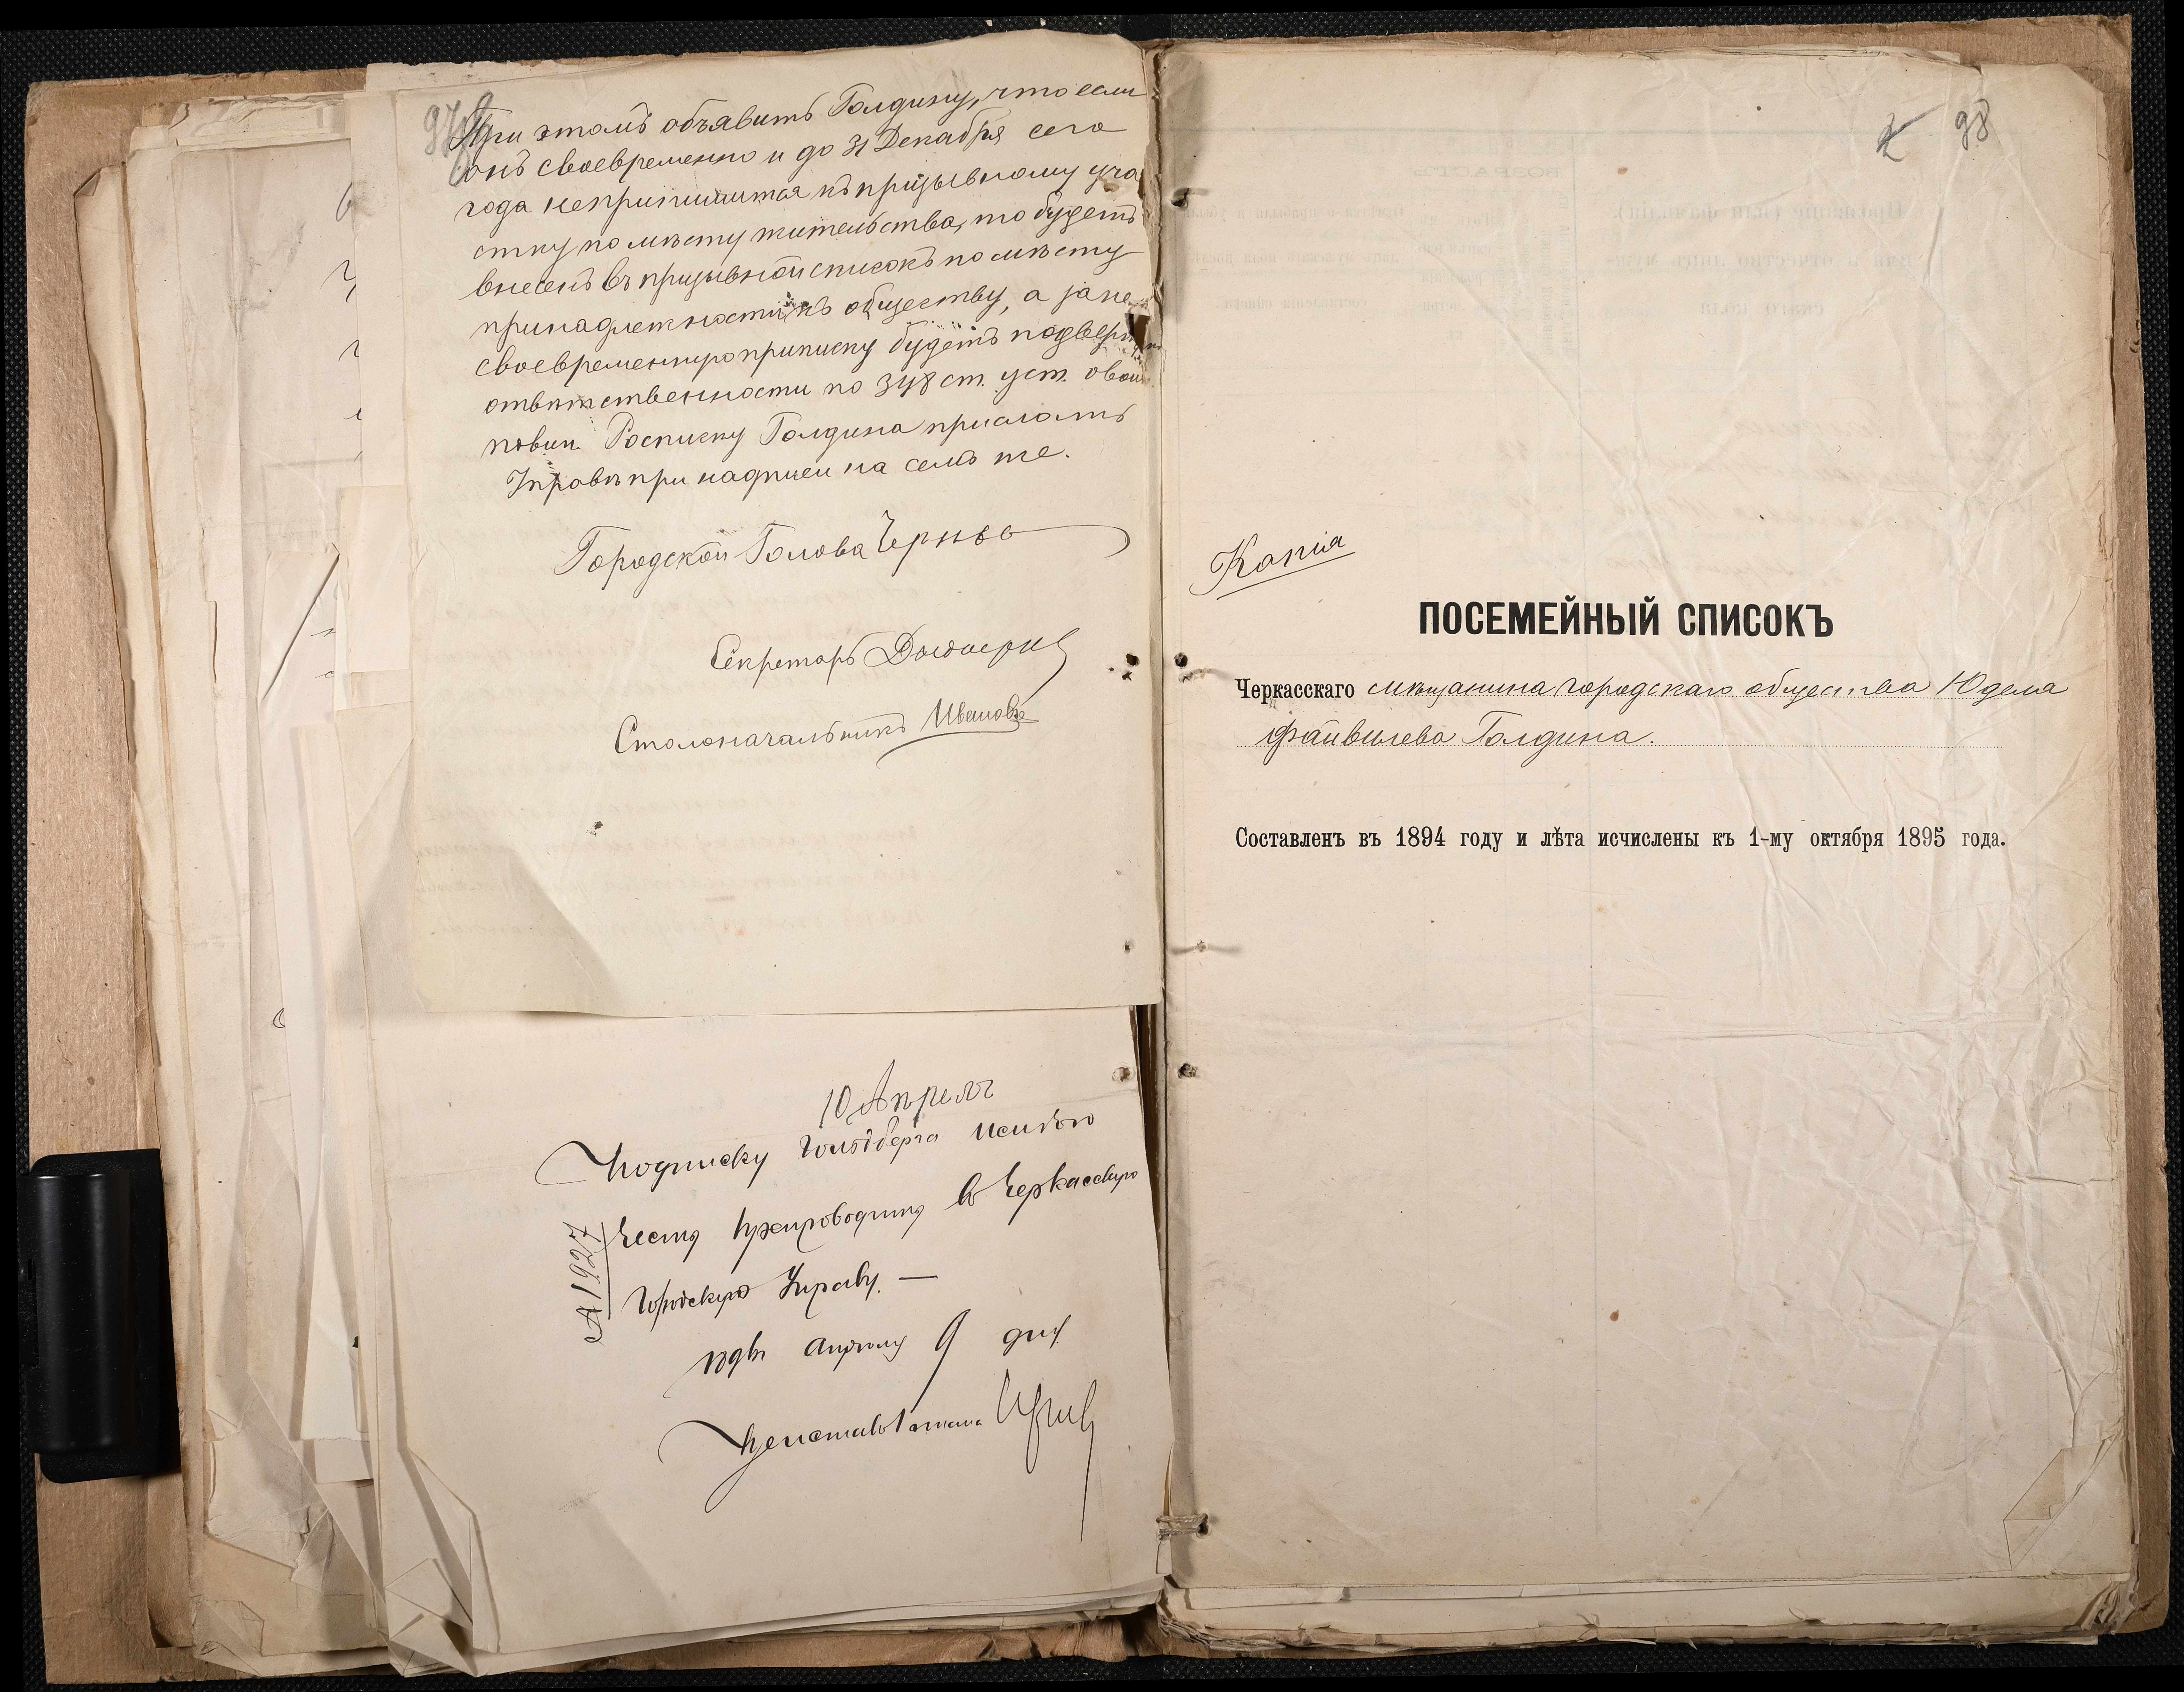 При этомъ объявить Голдину, что если
онъ своевременно и до 31 Декабря сего
года неприпишится къ призывному уча
стку по мѣсту жительства, то будетъ
внесенъ въ призывной списокъ по мѣсту
принадлежности къ обществу, а за не
своевременную приписку будетъ подверг
отвѣтственности по 348 ст. уст. о воин.
повин. Росписку Голдина прислать
Управѣ при надписи на семъ же.
Городской Голова
Секретарь
Столоначальникъ Ивановъ
10 Апреля
Подписку Гольдберга имѣю
честь препроводить въ Черкасскую
Городскую Управу. —
Апрѣля 9 дня
1927
98
Копія
ПОСЕМЕЙНЫЙ СПИСОКЪ
Черкасскаго мѣщанина городскаго общества Юделя
Файвилева Голдина.
Составленъ въ 1894 году и лѣта исчислены къ 1-му октября 1895 года.